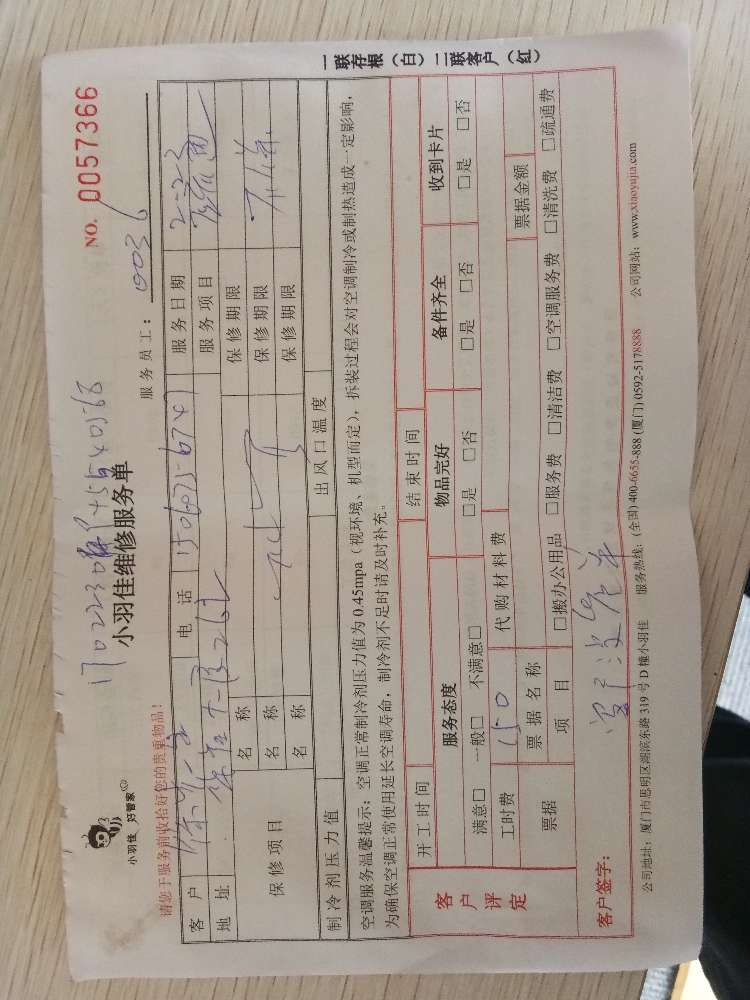 小羽佳 好管家
小羽佳维修服务单
NO. 0057366
请您于服务前收拾好您的贵重物品!
服务员工: 0036
客 户 电 话 服务日期 2-22
地 址 服务项目
保修项目 名 称 保修期限
名 称 保修期限
名 称 保修期限
制冷剂压力值 出风口温度
空调服务温馨提示: 空调正常制冷剂压力值为 0.45mpa (视环境、机型而定), 拆装过程会对空调制冷或制热造成一定影响,
为确保空调正常使用延长空调寿命, 制冷剂不足时请及时补充。
客户评定 开工时间 结束时间
服务态度 物品完好 备件齐全 收到卡片
满意□ 一般□ 不满意□ □是 □否 □是 □否 □是 □否
工时费 150 代购材料费
票据 票据名称 票据金额
项 目 □搬办公用品 □服务费 □清洁费 □空调服务费 □清洗费 □疏通费
客户签字:
公司地址: 厦门市思明区湖滨东路 319 号 D 幢小羽佳 服务热线: (全国) 400-6655-888 (厦门) 0592-5178888 公司网站: www.xiaoyujia.com
一联存根 (白) 二联客户 (红)